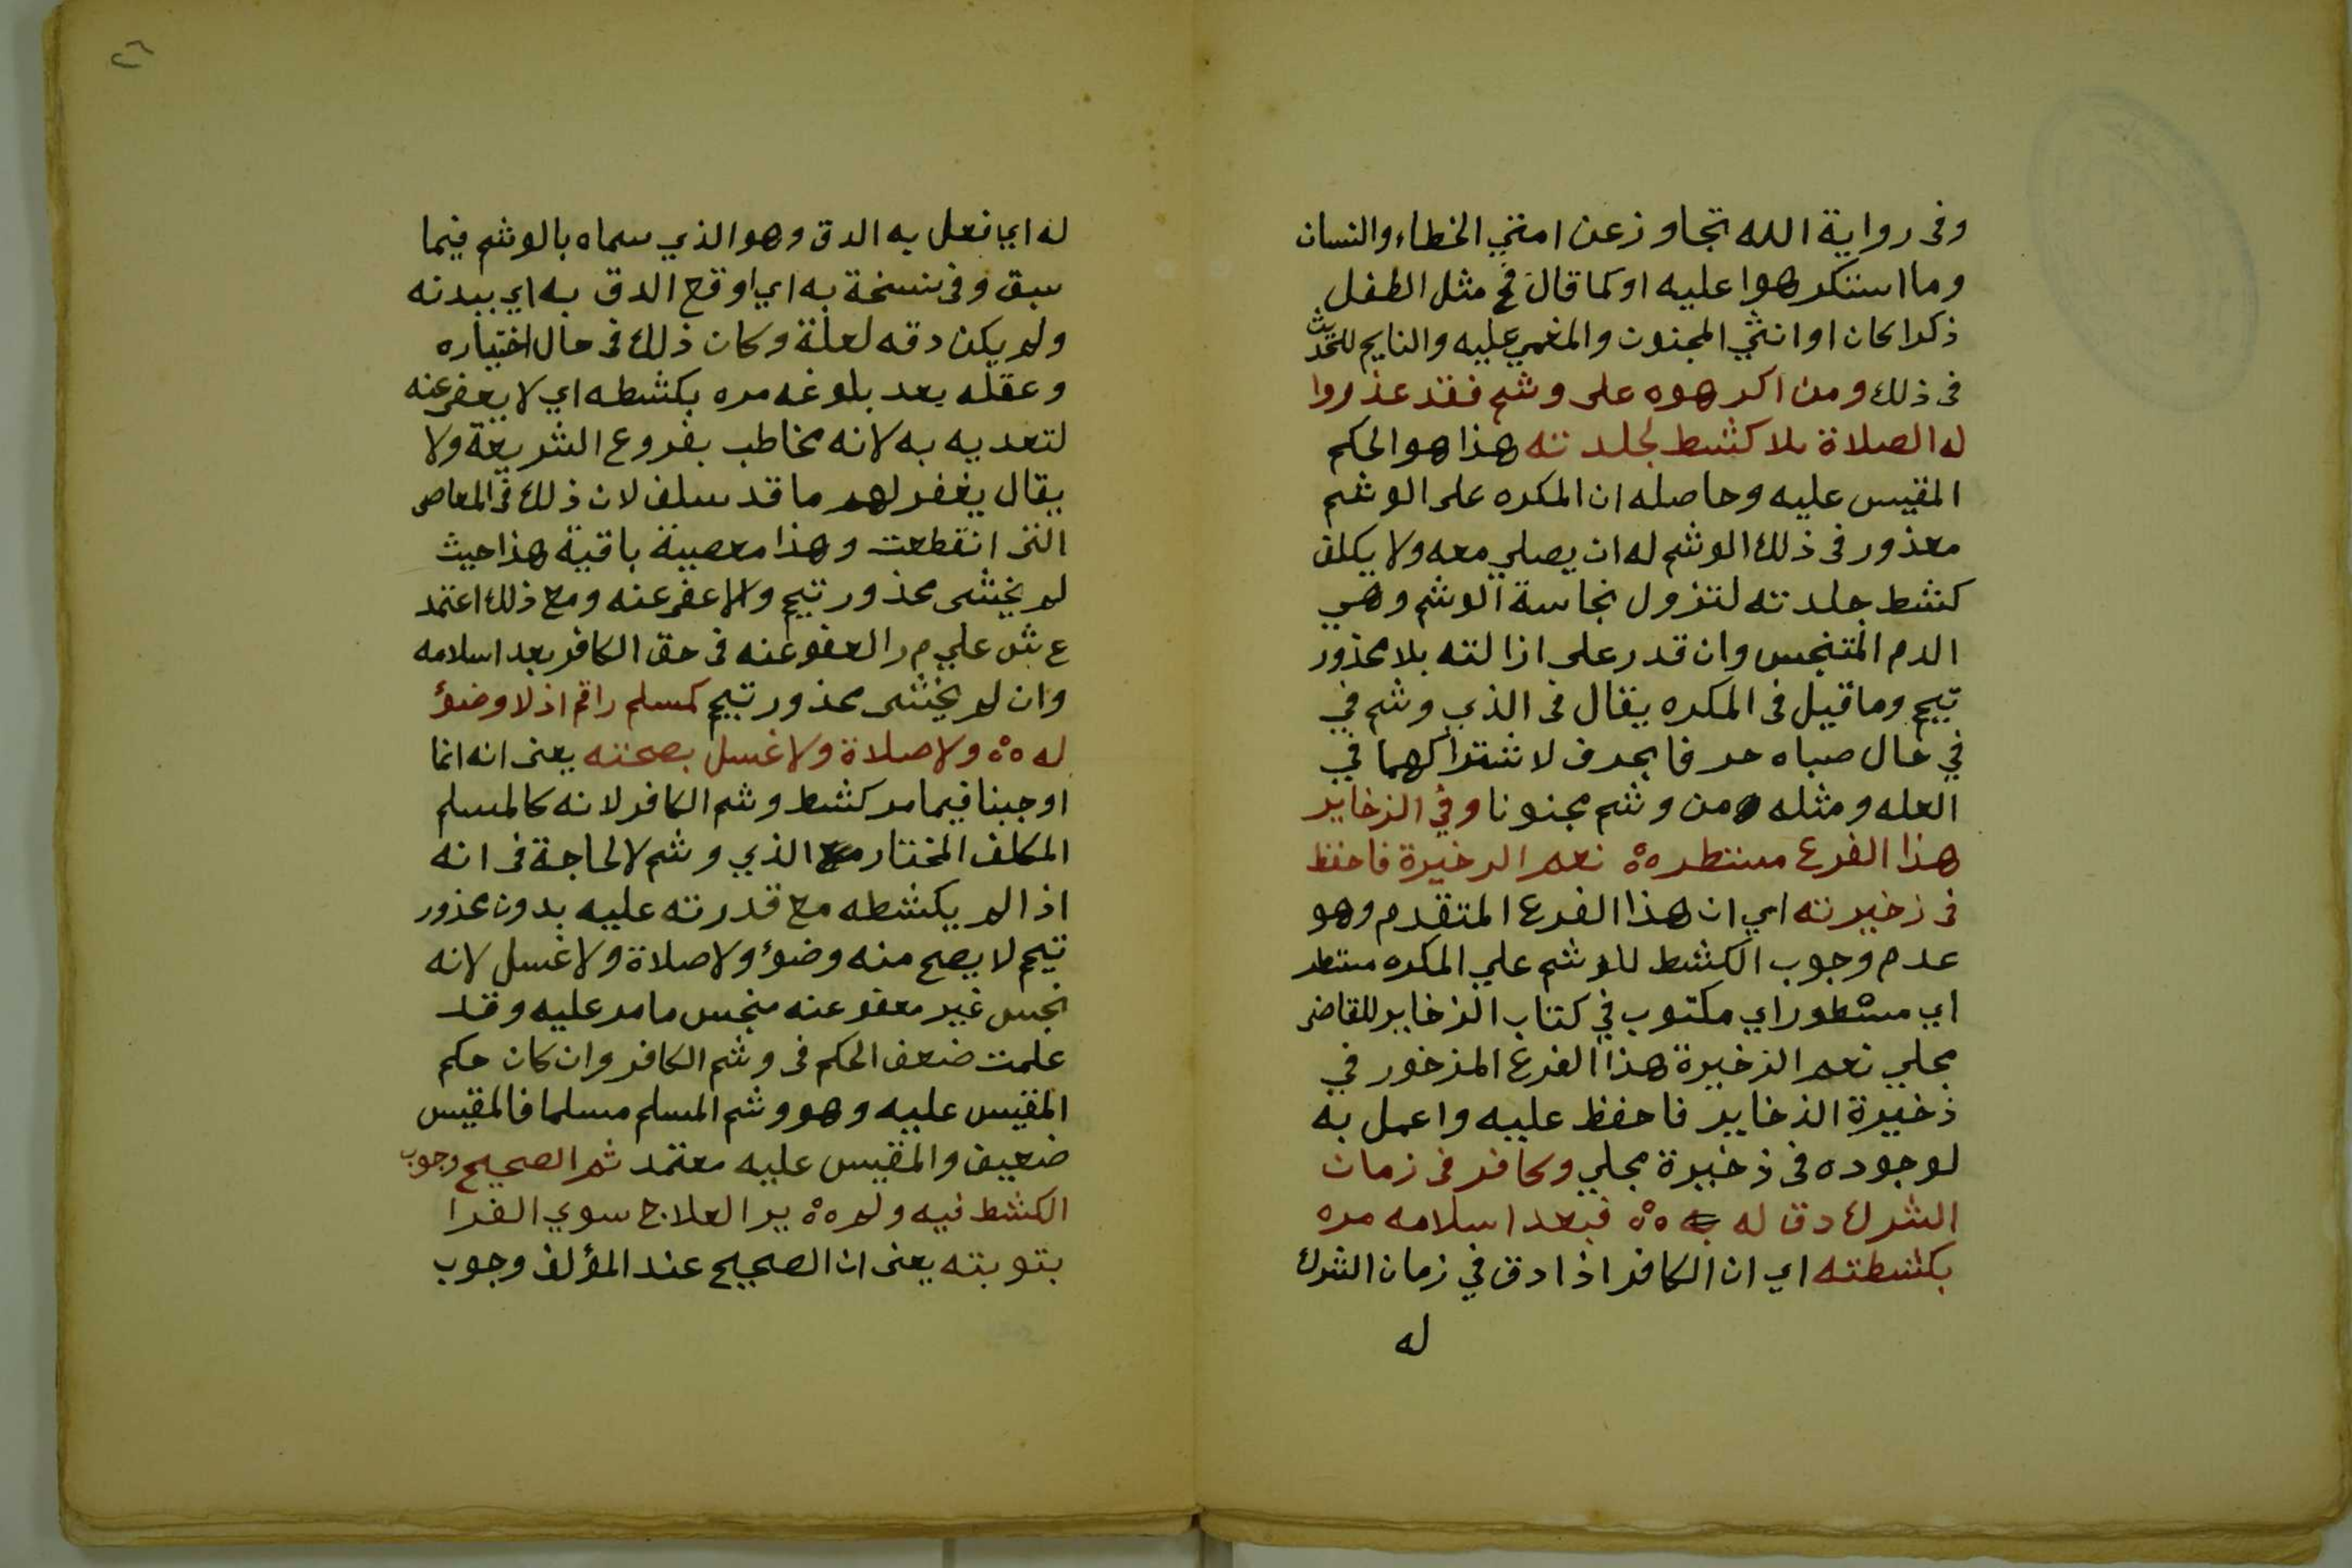 وفى رواية الله تجاوز عن امتي الخطاء والنسان
وما استكرهوا عليه او كما قال فح مثل الطفل
ذكرا كان او انثي المجنون والمغمي عليه والنايم للحديث
فى ذلك ومن اكرهوه على وشم فقد عذروا
له الصلاة بلا كشط لجلدته هذا هو الحكم
المقيس عليه وحاصله ان المكره على الوشم
معذور فى ذلك الوشم له ان يصلي معه ولا يكلف
كشط جلدته لتزول نجاسة الوشم وهي
الدم المتنجس وان قدر على ازالته بلا محذور
تيمم وما قيل فى المكره يقال فى الذي وشم في
في حال صباه حرفا بحرف لاشتراكهما في
العله ومثله من وشم مجنونا وفي الزخاير
هذا الفرع مستطر ٥٥ نعم الدخيرة فاحفظ
فى زخيرته اي ان هذا الفرع المتقدم وهو
عدم وجوب الكشط للوشم علي المكره مستطر
اي مسطور اي مكتوب في كتاب الزخاير للقاضى
مجلي نعم الزخيرة هذا الفرع المزخور في
ذخيرة الذخاير فاحفظ عليه واعمل به
لوجوده فى ذخيرة مجلي وكافر فى زمان
الشرك دق له ٥٥ فبعد اسلامه مره
بكشطته اي ان الكافر اذا دق في زمان الشرك
له
٢٦
له اي فعل به الدق وهو الذي سماه بالوشم فيما
سبق وفى نسخة به اي اوقع الدق به اي ببدنه
ولم يكن دقه لعلة وكان ذلك فى حال اختياره
وعقله بعد بلوغه مره بكشطه اي لا يعفى عنه
لتعديه به لانه مخاطب بفروع الشريعة ولا
يقال يغفر لهم ما قد سلف لان ذلك فى المعاصى
التى انقطعت وهذا معصية باقية هذا حيث
لم يخشى محذور تيمم والا عفى عنه ومع ذلك اعتمد
ع ش علي م ر العفو عنه فى حق الكافر بعد اسلامه
وان لم يخشى محذور تيمم كمسلم راقم اذ لا وضؤ
له ٥٥ ولا صلاة ولا غسل بصحته يعنى انه انما
اوجبنا فيما مر كشط وشم الكافر لانه كالمسلم
المكلف المختار الذي وشم لا لحاجة فى انه
اذا لم يكشطه مع قدرته عليه بدون محذور
تيمم لا يصح منه وضؤ ولا صلاة ولا غسل لانه
نجس غير معفو عنه منجس ما مر عليه وقد
علمت ضعف الحكم فى وشم الكافر وان كان حكم
المقيس عليه وهو وشم المسلم مسلما فالمقيس
ضعيف والمقيس عليه معتمد ثم الصحيح وجوب
الكشط فيه ولم ٥٥ ير العلاج سوي الفرا
بتوبته يعنى ان الصحيح عند المؤلف وجوب